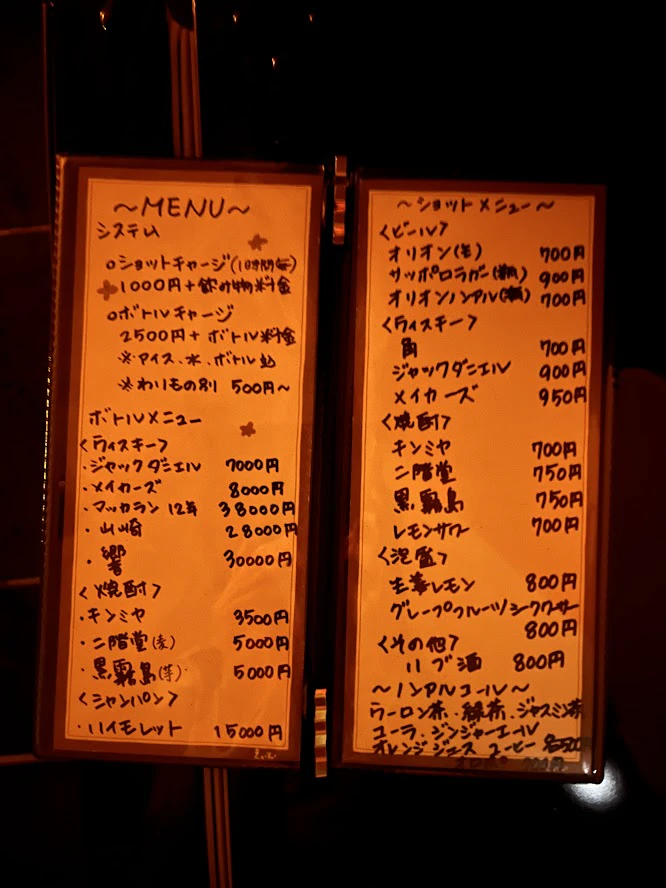 ～MENU～
システム
○ショットチャージ(1時間毎)
1000円+飲み物料金
○ボトルチャージ
2500円+ボトル料金
※アイス、水、ボトル込
※わりもの別 500円～
ボトルメニュー
<ウィスキー>
・ジャックダニエル 7000円
・メイカーズ 8000円
・マッカラン 12年 38000円
・山崎 28000円
・響 30000円
<焼酎>
・キンミヤ 3500円
・二階堂(麦) 5000円
・黒霧島(芋) 5000円
<シャンパン>
・ハイモレット 15000円
～ショットメニュー～
<ビール>
オリオン(生) 700円
サッポロラガー(瓶) 900円
オリオンノンアル(瓶) 700円
<ウィスキー>
角 700円
ジャックダニエル 900円
メイカーズ 950円
<焼酎>
キンミヤ 700円
二階堂 750円
黒霧島 750円
レモンサワー 700円
<泡盛>
生姜レモン 800円
グレープフルーツシークワーサー
800円
<その他>
ハブ酒 800円
～ノンアルコール～
ウーロン茶・緑茶・ジャスミン茶
コーラ・ジンジャーエール
オレンジジュース コーヒー 各500
700円